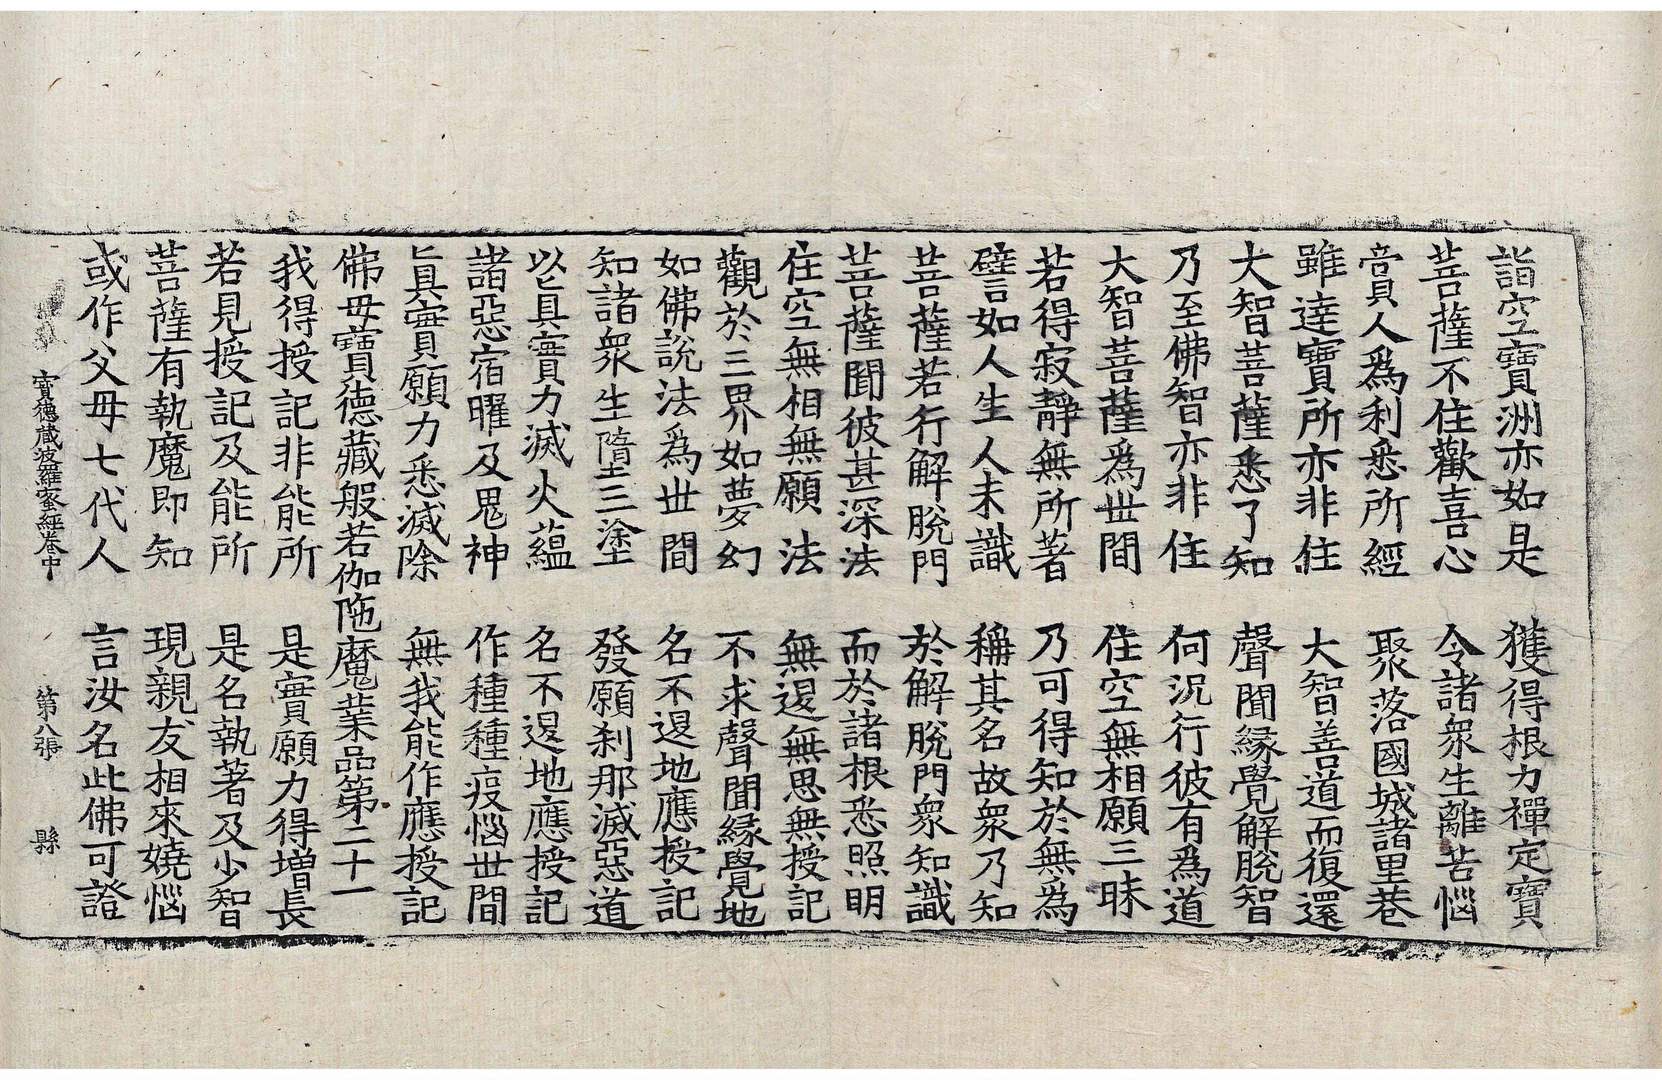 詣空寶洲亦如是　獲得根力禪定寶
菩薩不住歡喜心　令諸衆生離苦惱
啇人爲利悉所經　聚落國城諸里巷
雖達寶所亦非住　大智善道而復還
大智菩薩悉了知　聲聞緣覺解脫智
乃至佛智亦非住　何況行彼有爲道
大智菩薩爲世間　住空無相願三昧
若得寂靜無所著　乃可得知於無爲
譬如人生人未識　稱其名故衆乃知
菩薩若行解脫門　於解脫門衆知識
菩薩聞彼甚深法　而於諸根悉照明
住空無相無願法　無退無思無授記
觀於三界如夢幻　不求聲聞緣覺地
如佛說法爲世間　名不退地應授記
知諸衆生墮三塗　發願刹那滅惡道
以眞實力滅火蘊　名不退地應授記
諸惡宿曜及鬼神　作種種疫惱世間
以眞實願力悉滅除　無我能作應授記
佛母寶德藏般若伽陁魔業品第二十一
我得授記非能所　是實願力得增長
若見授記及能所　是名執著及少智
菩薩有執魔即知　現親友相來嬈惱
或作父母七代人　言汝名此佛可證
寶德藏波羅蜜經卷中　第八張　縣